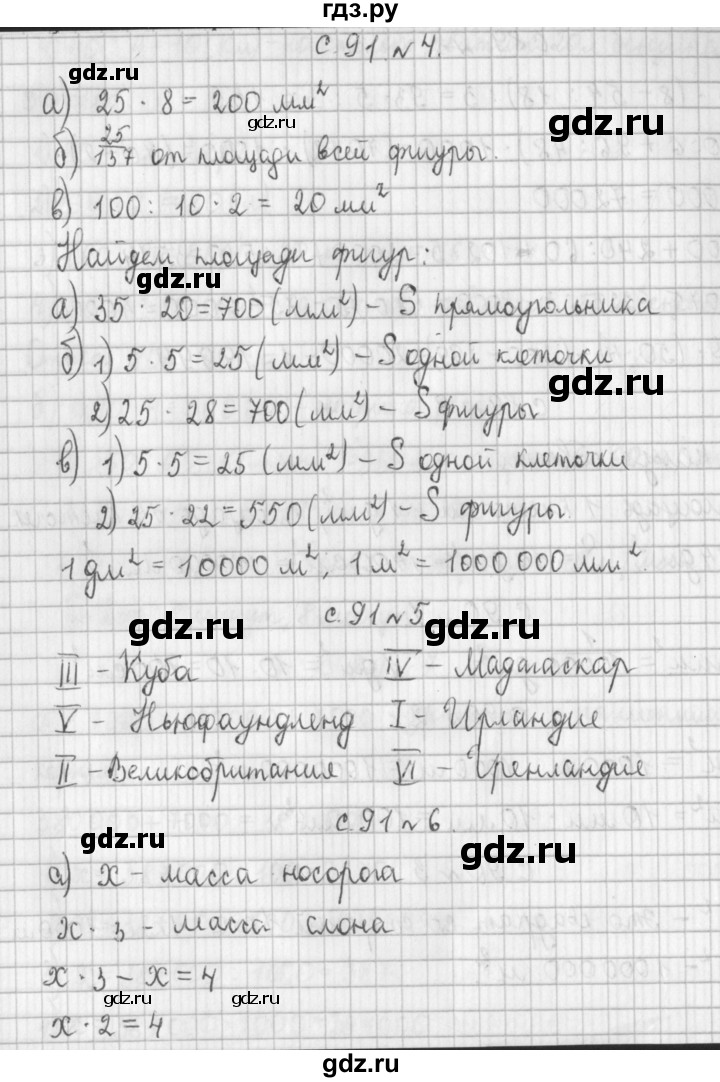 гдз.ру
с. 91 № 4.
gdz.ru
а) 25 · 8 = 200 мм²
gdz.ru
б) 25/137 от площади всей фигуры.
gdz.ru
в) 100 : 10 · 2 = 20 мм²
Найдем площади фигур:
gdz.ru
а) 35 · 20 = 700 (мм²) – S прямоугольника
gdz.ru
б) 1) 5 · 5 = 25 (мм²) – S одной клеточки
gdz.ru
2) 25 · 28 = 700 (мм²) – S фигуры
в) 1) 5 · 5 = 25 (мм²) – S одной клеточки
2) 25 · 22 = 550 (мм²) – S фигуры.
1 дм² = 10000 м², 1 м² = 1000 000 мм².
с. 91 № 5
gdz.ru gdz.ru
III – Куба IV – Мадагаскар
V – Ньюфаундленд I – Ирландие
II – Великобритания VI – Гренландие
с. 91 № 6.
gdz.ru gdz.ru
а) x – масса носорога
x · 3 – масса слона
x · 3 – x = 4
gdz.ru gdz.ru gdz.ru
x · 2 = 4
gdz.ru
gdz.ru